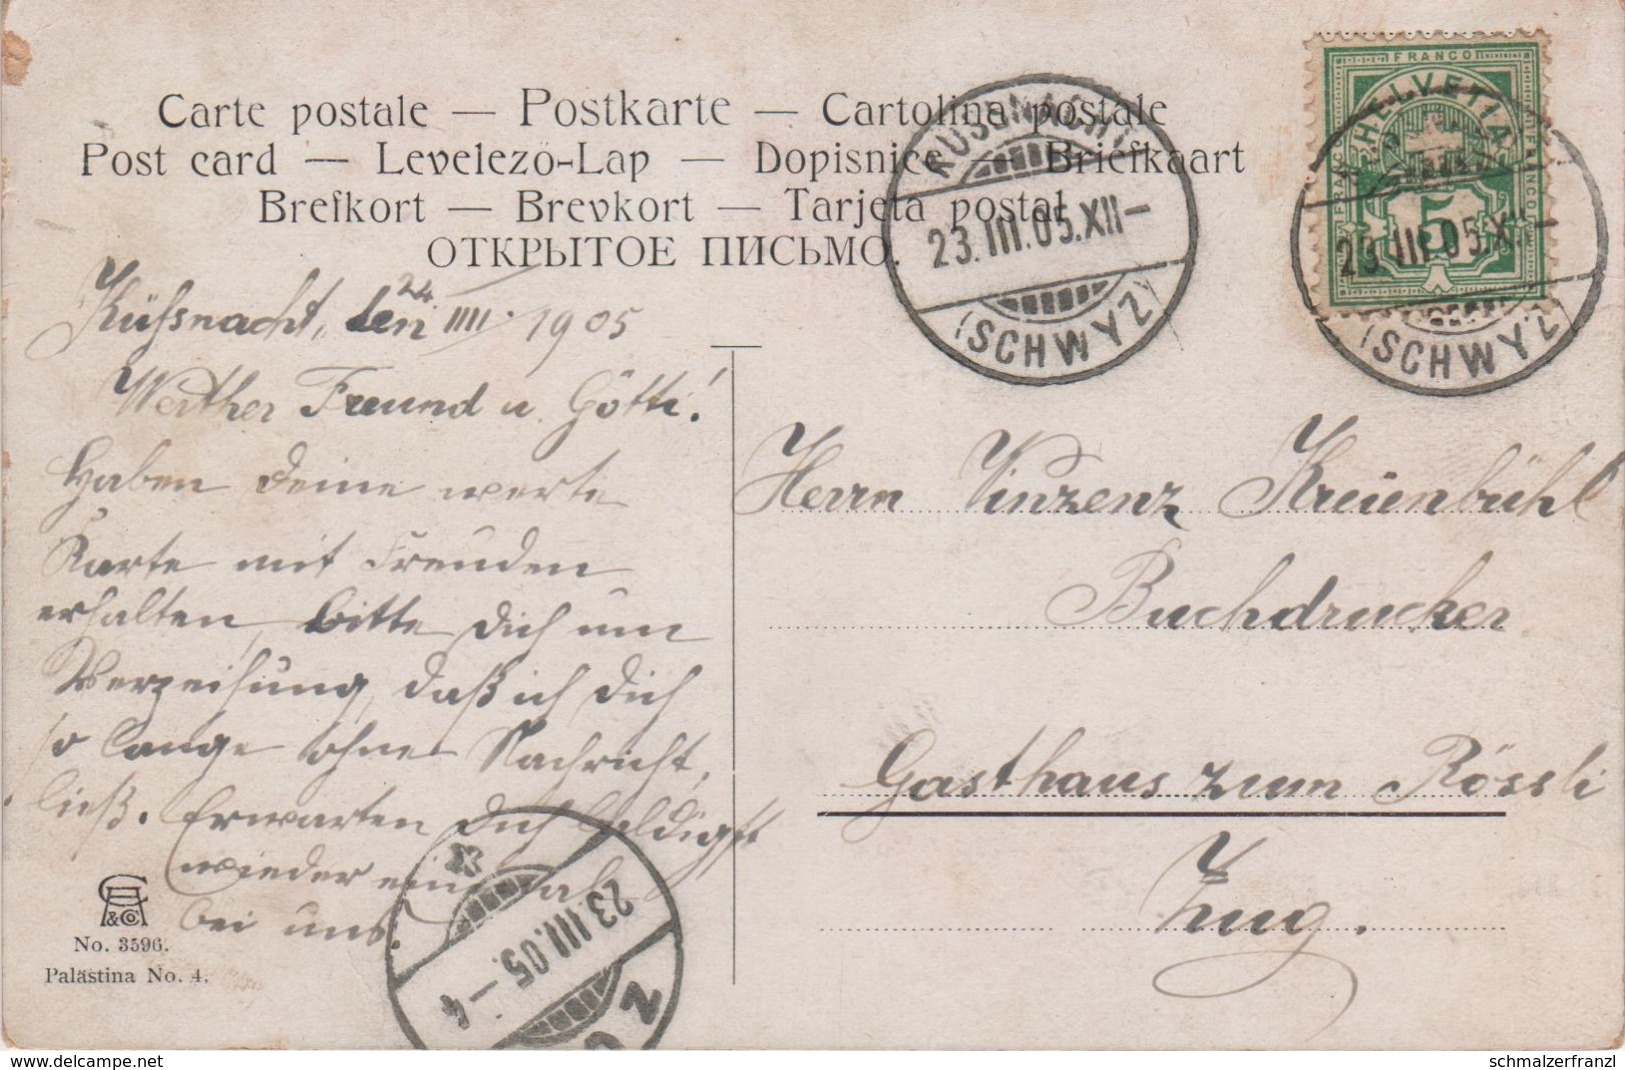 Carte postale — Postkarte — Cartolina postale
Post card — Levelezö-Lap — Dopisnice — Briefkaart
Brefkort — Brevkort — Tarjeta postal
ОТКРЫТОЕ ПИСЬМО.
FRANCO
HELVETIA
FRANCO
FRANCO
5
23.III.05.XII–
(SCHWYZ)
KÜSSNACHT
23.III.05.XII–
(SCHWYZ)
Küssnacht, den 24 IIII. 1905
Werther Freund u. Götti!
Haben deine werte
Karte mit Freuden
erhalten, bitte dich um
Verzeihung, daß ich dich
so lange ohne Nachricht,
ließ. Erwarten dich
wieder einmal
bei uns.
Herrn Vinzenz Kreienbühl
Buchdrucker
Gasthaus zum Rössli
Zug.
23.III.05.–4
ZUG
& Co
No. 3596.
Palästina No. 4.
www.delcampe.net
schmalzerfranzl